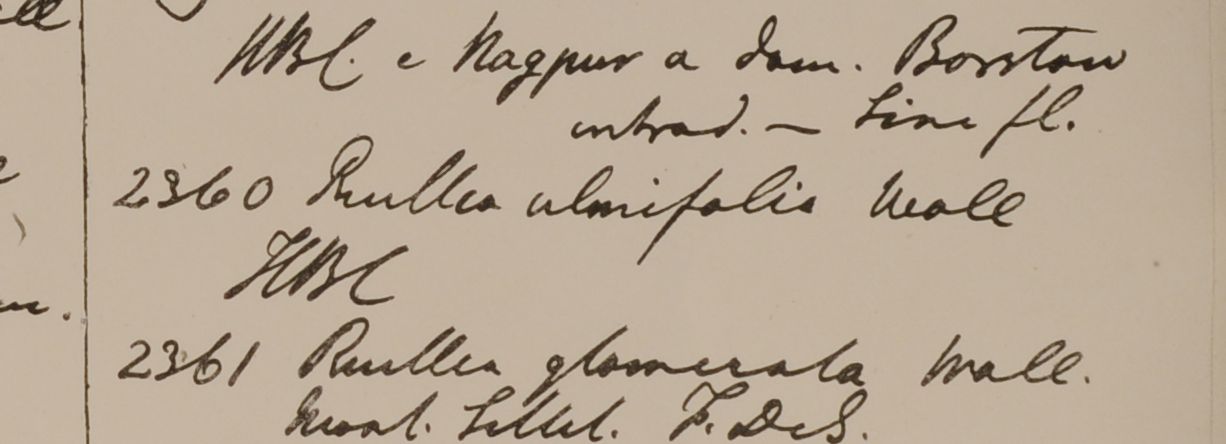 HBC. e Nagpur a dom. Borston
introd. — Sine fl.
2360 Ruellia ulmifolia Wall
HBC
2361 Ruellia glomerata Wall.
Mont. Sillet. F. De S.